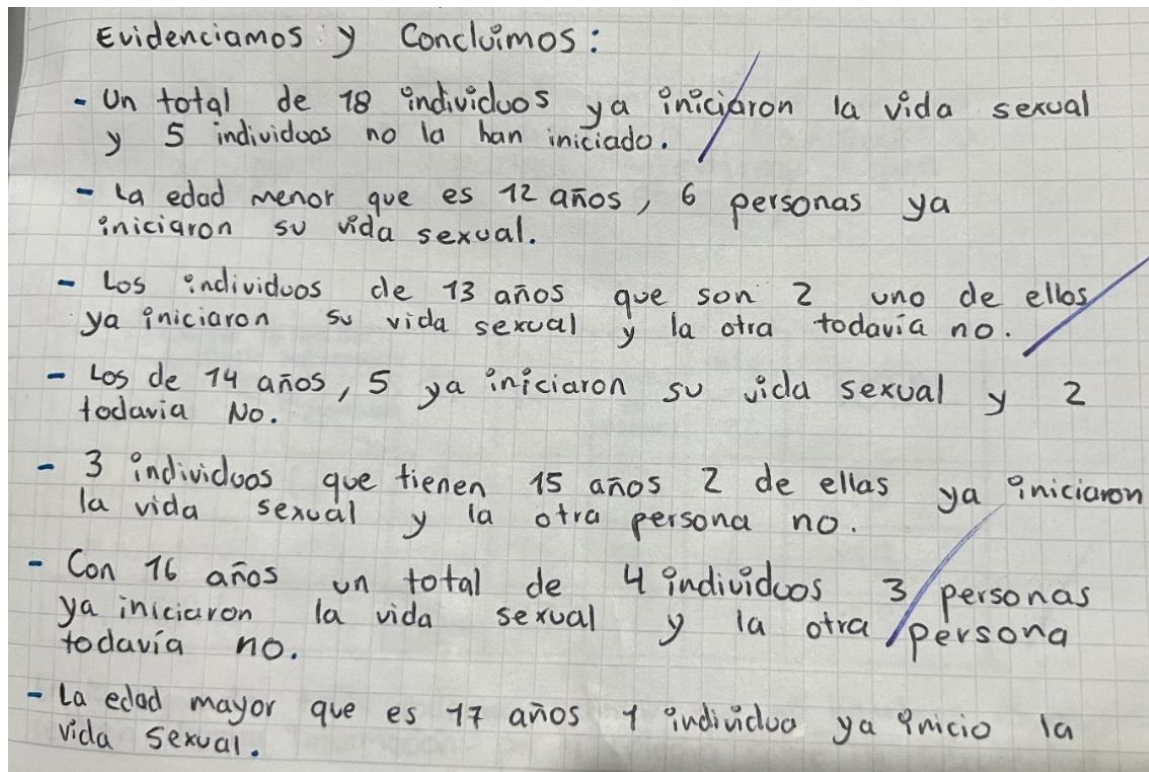 Evidenciamos y Concluimos:
- Un total de 18 individuos ya iniciaron la vida sexual
y 5 individuos no la han iniciado.
- La edad menor que es 12 años, 6 personas ya
iniciaron su vida sexual.
- Los individuos de 13 años que son 2 uno de ellos
ya iniciaron su vida sexual y la otra todavía no.
- Los de 14 años, 5 ya iniciaron su vida sexual y 2
todavia No.
- 3 individuos que tienen 15 años 2 de ellas ya iniciaron
la vida sexual y la otra persona no.
- Con 16 años un total de 4 individuos 3 personas
ya iniciaron la vida sexual y la otra persona
todavía no.
- La edad mayor que es 17 años 1 individuo ya inicio la
vida sexual.